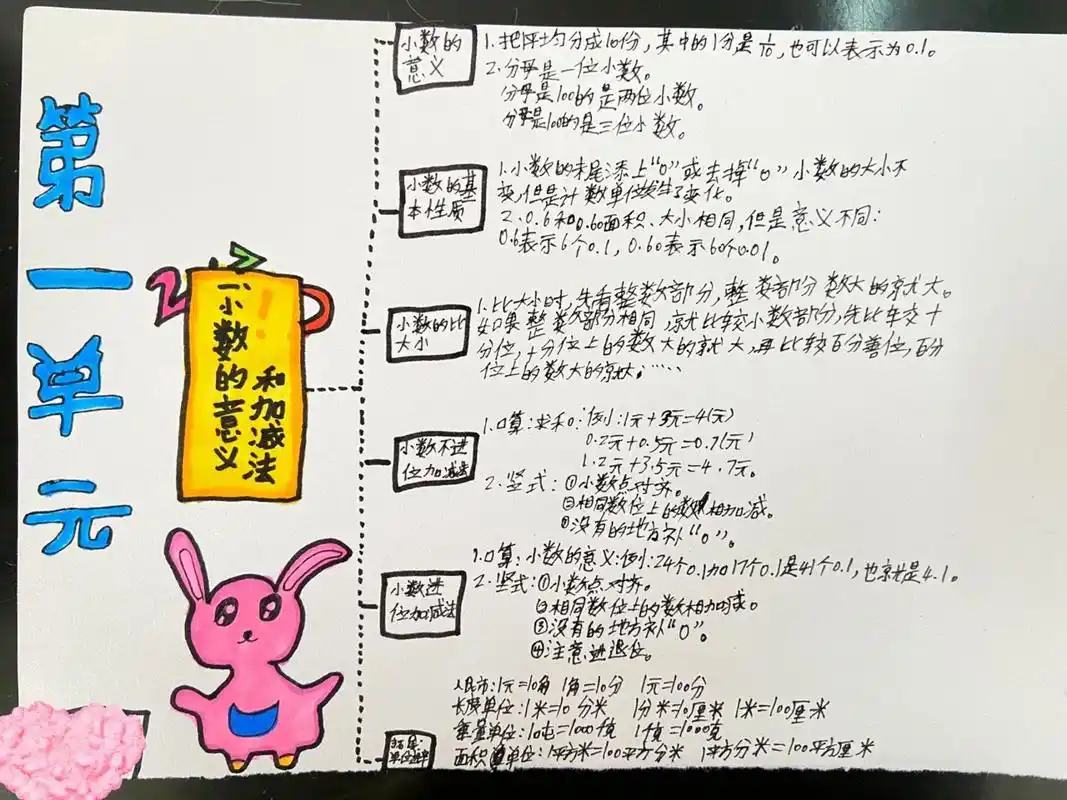 第一单元
一、小数的意义
和加减法
小数的
意义
1.把1平均分成10份，其中的1份是1/10，也可以表示为0.1。
2.分母是一位小数。
分母是100的是两位小数。
分母是100的是三位小数。
小数的基
本性质
1.小数的末尾添上“0”或去掉“0”小数的大小不
变，但是计数单位发生了变化。
2、0.6和0.60面积、大小相同，但是意义不同：
0.6表示6个0.1，0.60表示60个0.01。
小数的比
大小
1.比大小时，先看整数部分，整数部分数大的就大。
如果整数部分相同，就比较小数部分，先比较十
分位，十分位上的数大的就大，再比较百分位，百分
位上的数大的就大……
小数不进
位加减法
1.口算：求和：例：1元+3元=4(元)
0.2元+0.5元=0.7(元)
1.2元+3.5元=4.7元。
2.竖式：①小数点对齐。
②相同数位上的数相加减。
③没有的地方补“0”。
小数进
位加减法
1.口算：小数的意义：例：24个0.1加17个0.1是41个0.1，也就是4.1。
2.竖式：①小数点对齐。
②相同数位上的数相加减。
③没有的地方补“0”。
④注意进退位。
单位进率
人民币：1元=10角 1角=10分 1元=100分
长度单位：1米=10分米 1分米=10厘米 1米=100厘米
重量单位：10吨=1000千克 1千克=1000克
面积单位：1平方米=100平方分米 1平方分米=100平方厘米